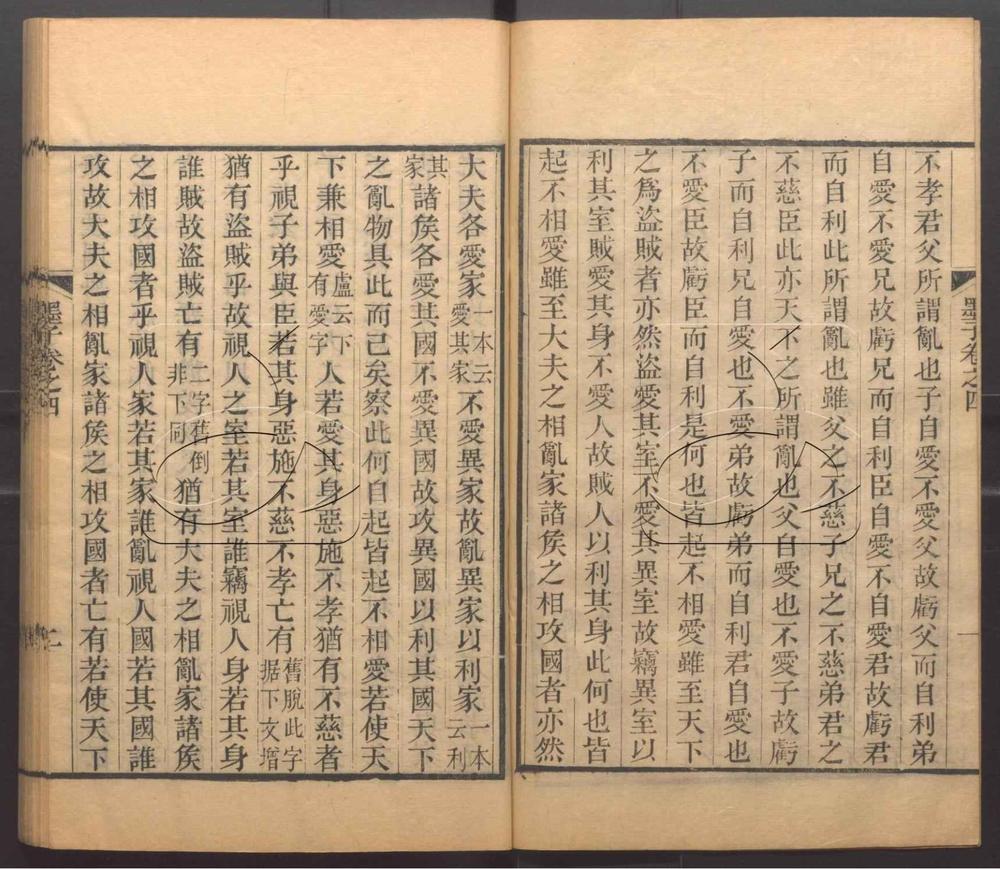 不孝君父所謂亂也子自愛不愛父故虧父而自利弟
自愛不愛兄故虧兄而自利臣自愛不自愛君故虧君
而自利此所謂亂也雖父之不慈子兄之不慈弟君之
不慈臣此亦天下之所謂亂也父自愛也不愛子故虧
子而自利兄自愛也不愛弟故虧弟而自利君自愛也
不愛臣故虧臣而自利是何也皆起不相愛雖至天下
之爲盜賊者亦然盜愛其室不愛其異室故竊異室以
利其室賊愛其身不愛人故賊人以利其身此何也皆
起不相愛雖至大夫之相亂家諸矦之相攻國者亦然
墨子卷之四
一
大夫各愛家一本云愛其家不愛異家故亂異家以利家一本云利
其家諸矦各愛其國不愛異國故攻異國以利其國天下
之亂物具此而已矣察此何自起皆起不相愛若使天
下兼相愛盧云下有愛字人若愛其身惡施不孝猶有不慈者
乎視子弟與臣若其身惡施不慈不孝亡有舊脫此字据下文增
猶有盜賊乎故視人之室若其室誰竊視人身若其身
誰賊故盜賊亡有二字舊倒非下同猶有大夫之相亂家諸矦
之相攻國者乎視人家若其家誰亂視人國若其國誰
攻故大夫之相亂家諸矦之相攻國者亡有若使天下
墨子卷之四
二